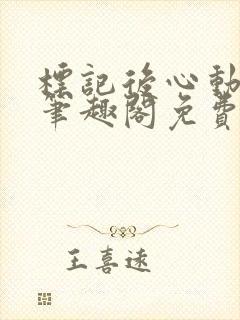 標記後心動
筆趣閣免費
王喜遠